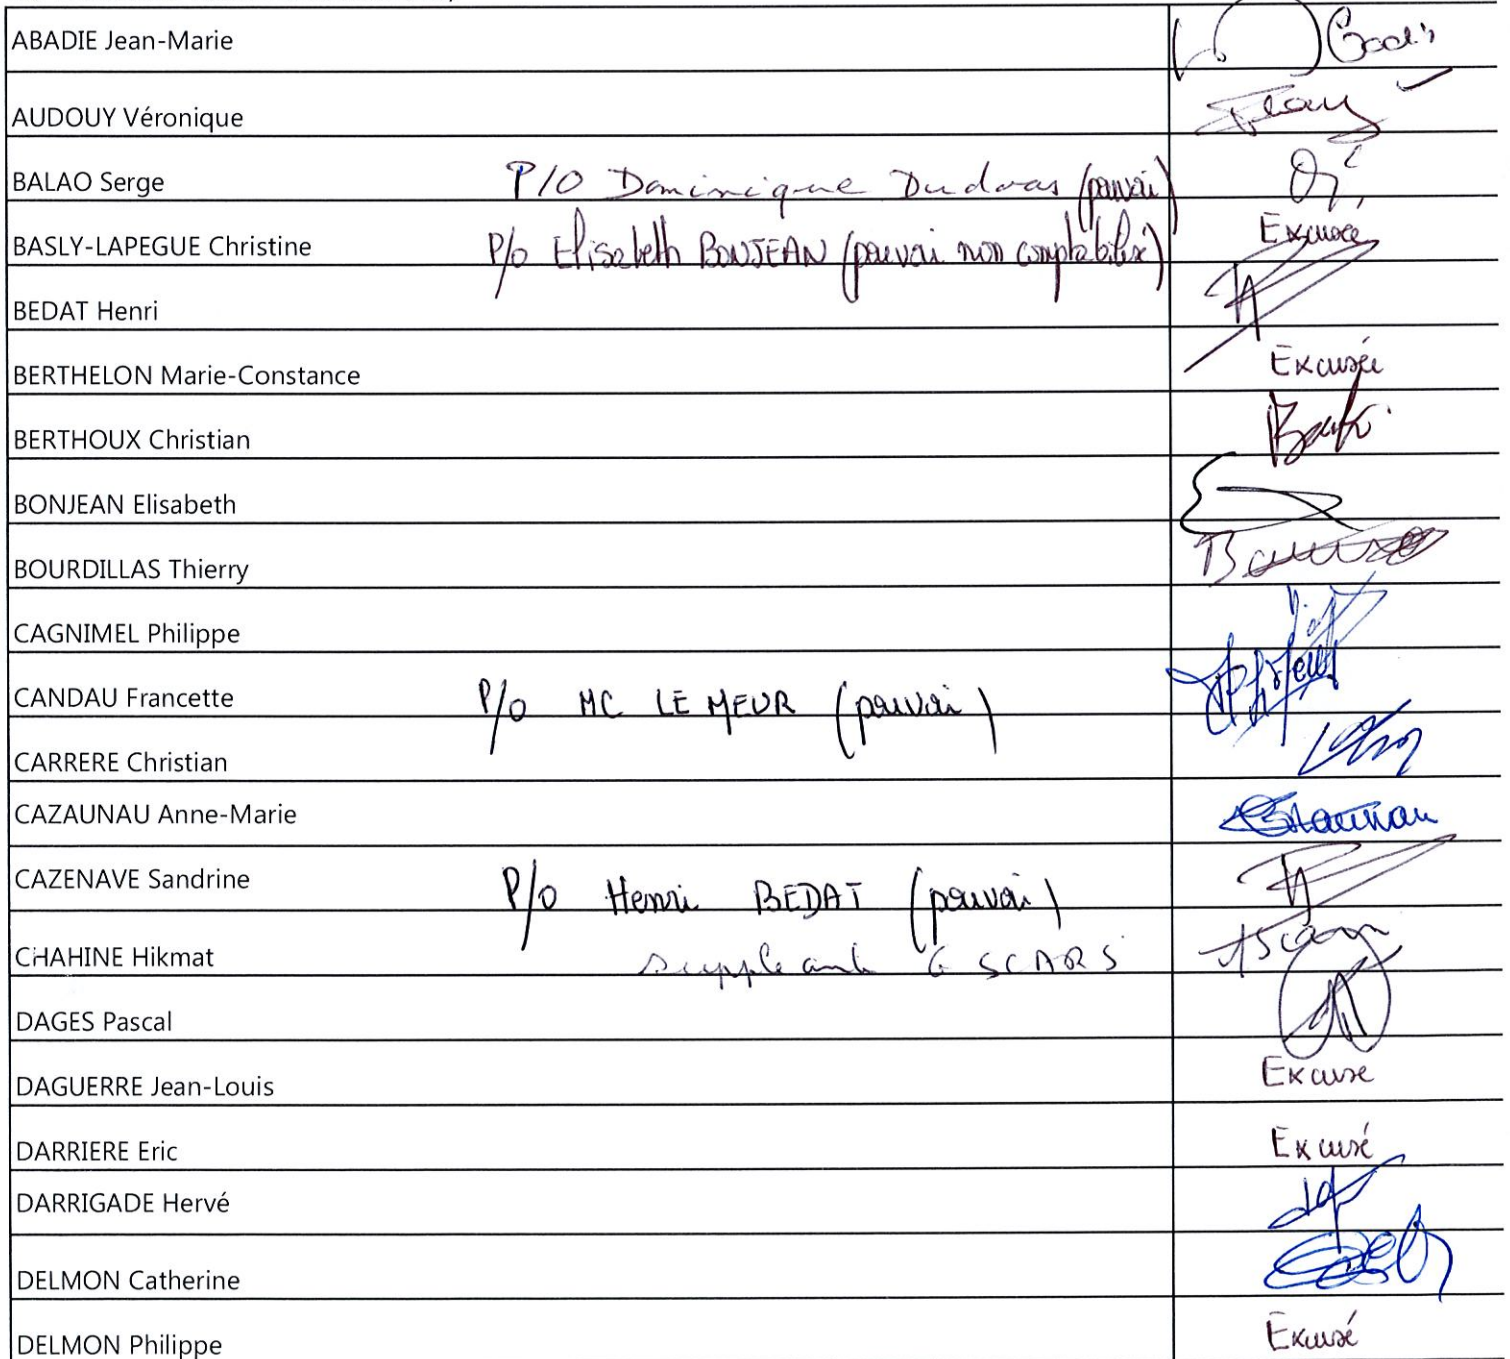 ABADIE Jean-Marie
AUDOUY Véronique
BALAO Serge P/O Dominique Dudous (pouvoir)
BASLY-LAPEGUE Christine P/o Elisabeth BONJEAN (pouvoir non comptabilisé) Excusée
BEDAT Henri
BERTHELON Marie-Constance Excusée
BERTHOUX Christian
BONJEAN Elisabeth
BOURDILLAS Thierry
CAGNIMEL Philippe
CANDAU Francette P/o MC LE MEUR (pouvoir)
CARRERE Christian
CAZAUNAU Anne-Marie
CAZENAVE Sandrine P/o Henri BEDAT (pouvoir)
CHAHINE Hikmat suppléant G SCARS
DAGES Pascal
DAGUERRE Jean-Louis Excusé
DARRIERE Eric Excusé
DARRIGADE Hervé
DELMON Catherine
DELMON Philippe Excusé